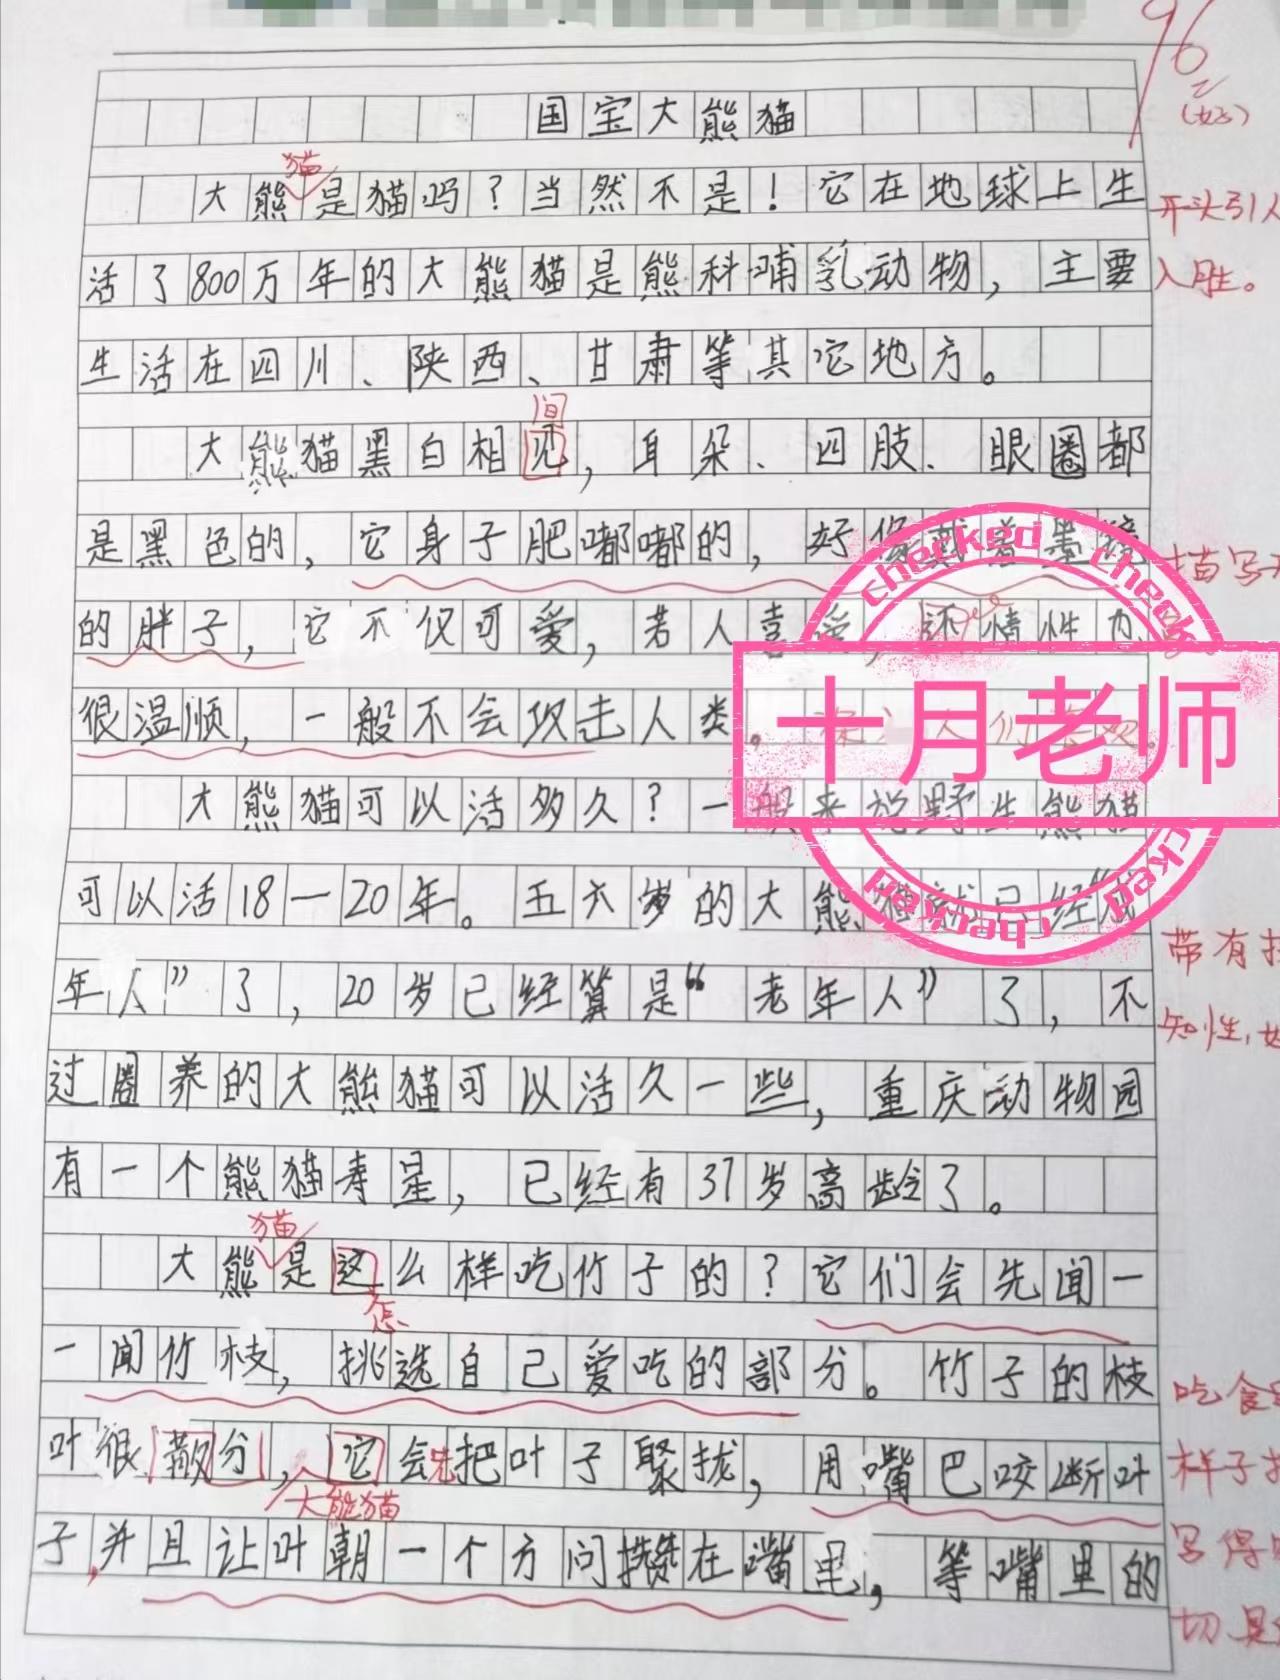 96
(好)
国宝大熊猫
猫
大熊是猫吗?当然不是!它在地球上生
开头引人
活了800万年的大熊猫是熊科哺乳动物,主要
入胜。
生活在四川、陕西、甘肃等其它地方。
间
大熊猫黑白相见,耳朵、四肢、眼圈都
是黑色的,它身子肥嘟嘟的,好像戴着墨镜
描写
的胖子,它不仅可爱,若人喜爱,还情性力
很温顺,一般不会攻击人类。
checked check
十月老师
checked
大熊猫可以活多久?一般来说野生熊猫
可以活18一20年。五六岁的大熊猫就已经“成
带有
年人”了,20岁已经算是“老年人”了,不
知性,
过圈养的大熊猫可以活久一些,重庆动物园
有一个熊猫寿星,已经有37岁高龄了。
猫
大熊是这么样吃竹子的?它们会先闻一
怎
一闻竹枝,挑选自己爱吃的部分。竹子的枝
吃食
叶很散分,它会先把叶子聚拢,用嘴巴咬断叶
样子
大熊猫
子,并且让叶朝一个方问攒在嘴里,等嘴里的
写得
切